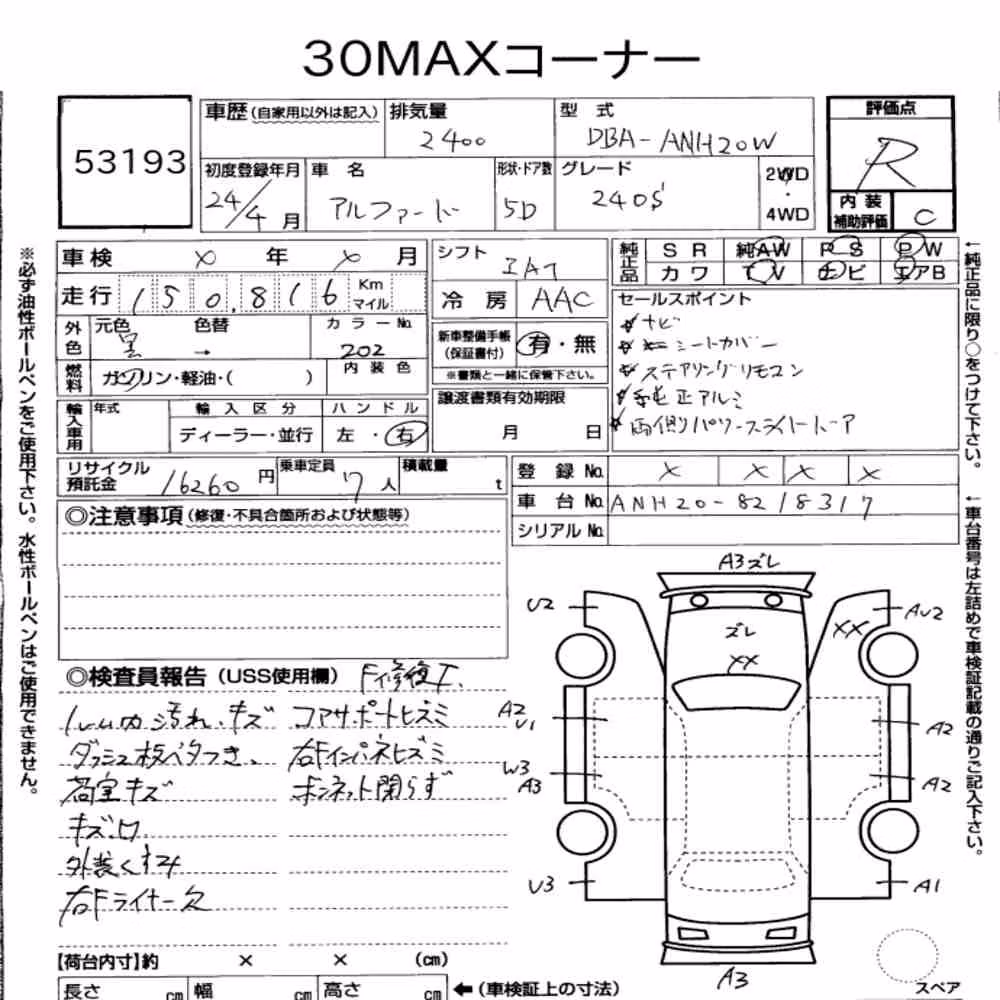 30MAXコーナー
53193
車歴(自家用以外は記入) 排気量 2400
型式 DBA-ANH20W
評価点 R
初度登録年月 24/4月
車名 アルファード
形状・ドア数 5D
グレード 240S
2WD・4WD
内装補助評価 C
車検 × 年 × 月
走行 150,816 Km マイル
シフト IAT
冷房 AAC
純正品 SR 純AW PS PW
カワ TV ナビ エアB
外色 元色 黒 色替 → カラーNo. 202
燃料 ガソリン・軽油・( ) 内装色
新車整備手帳(保証書付) 有・無
※書類と一緒に保管下さい。
セールスポイント
ナビ
シートカバー
ステアリングリモコン
純正アルミ
両側パワースライドドア
輸入車用 年式 輸入区分 ディーラー・並行 ハンドル 左・右
譲渡書類有効期限 月 日
リサイクル預託金 16260円
乗車定員 7人
積載量 t
登録No. × × × ×
車台No. ANH20-8218317
シリアルNo.
◎注意事項(修復・不具合箇所および状態等)
◎検査員報告(USS使用欄) F修復工.
ルーム内汚れ、キズ コアサポートヒズミ
ダッシュ板ベタつき、 右Fインパネヒズミ
荷室キズ ボンネット閉らず
キズ、凹
外装くすみ
右Fライナー欠
A3ズレ
U2
AU2
ズレ
XX
XX
A2
U1
A2
W3
A3
A2
U3
A1
A3
スペア
【荷台内寸】約 × × (cm)
長さ cm 幅 cm 高さ cm ←(車検証上の寸法)
※必ず油性ボールペンをご使用下さい。水性ボールペンはご使用できません。
←純正品に限り○をつけて下さい。
←車台番号は左詰めで車検証記載の通りご記入下さい。